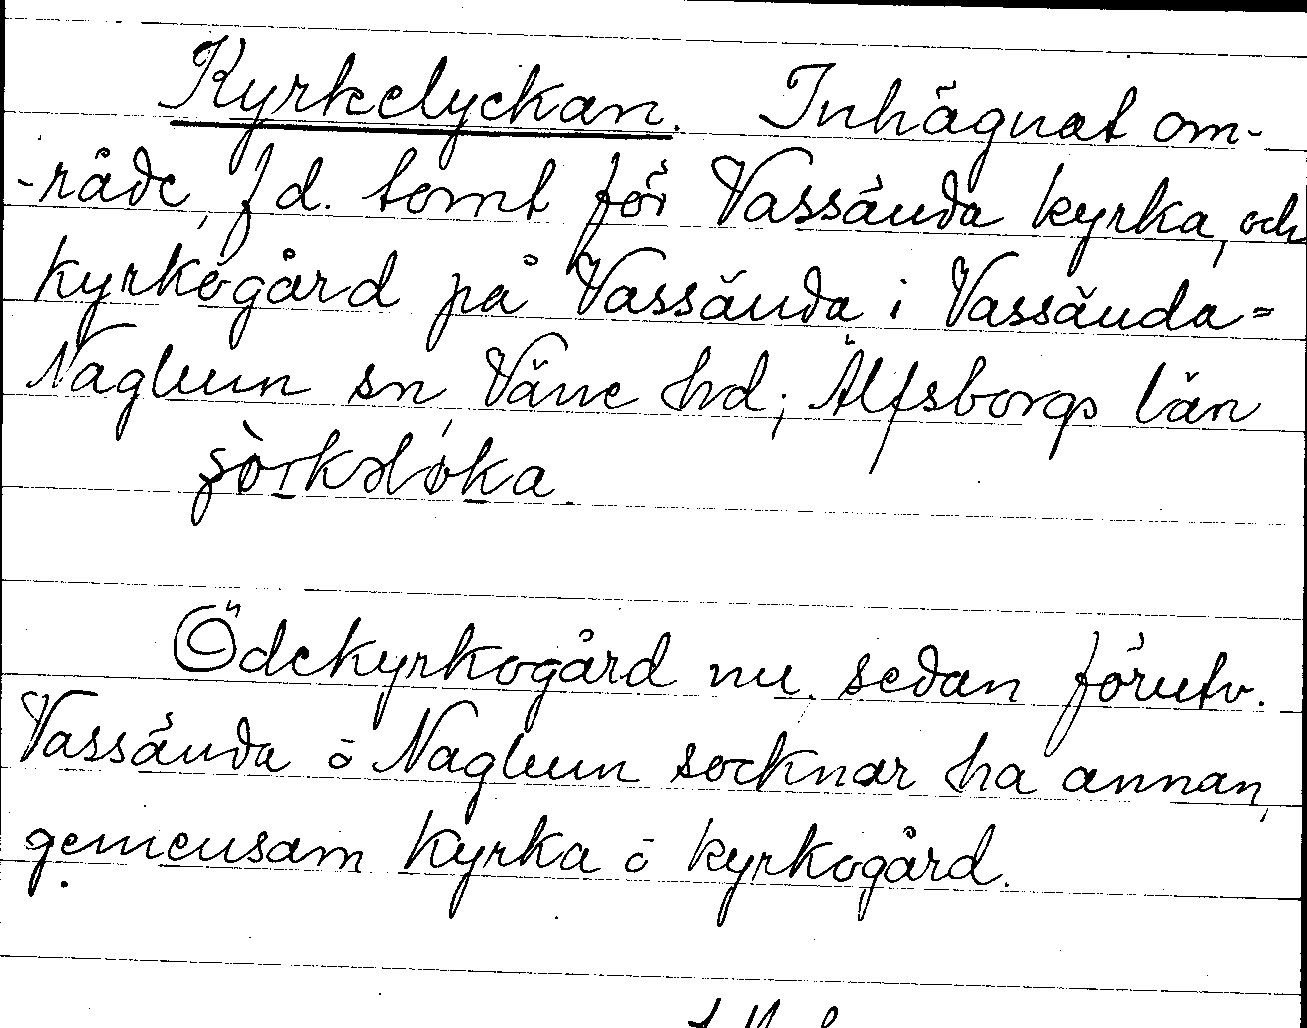 Kyrkelyckan. Inhägnat om-
-råde, f d. tomt för Vassända kyrka, och
kyrkogård på Vassända i Vassända=
Naglum sn, Väne hd; Älfsborgs län

Ödekyrkogård nu. sedan förutv.
Vassända o Naglum socknar ha annan,
gemensam kyrka o kyrkogård.